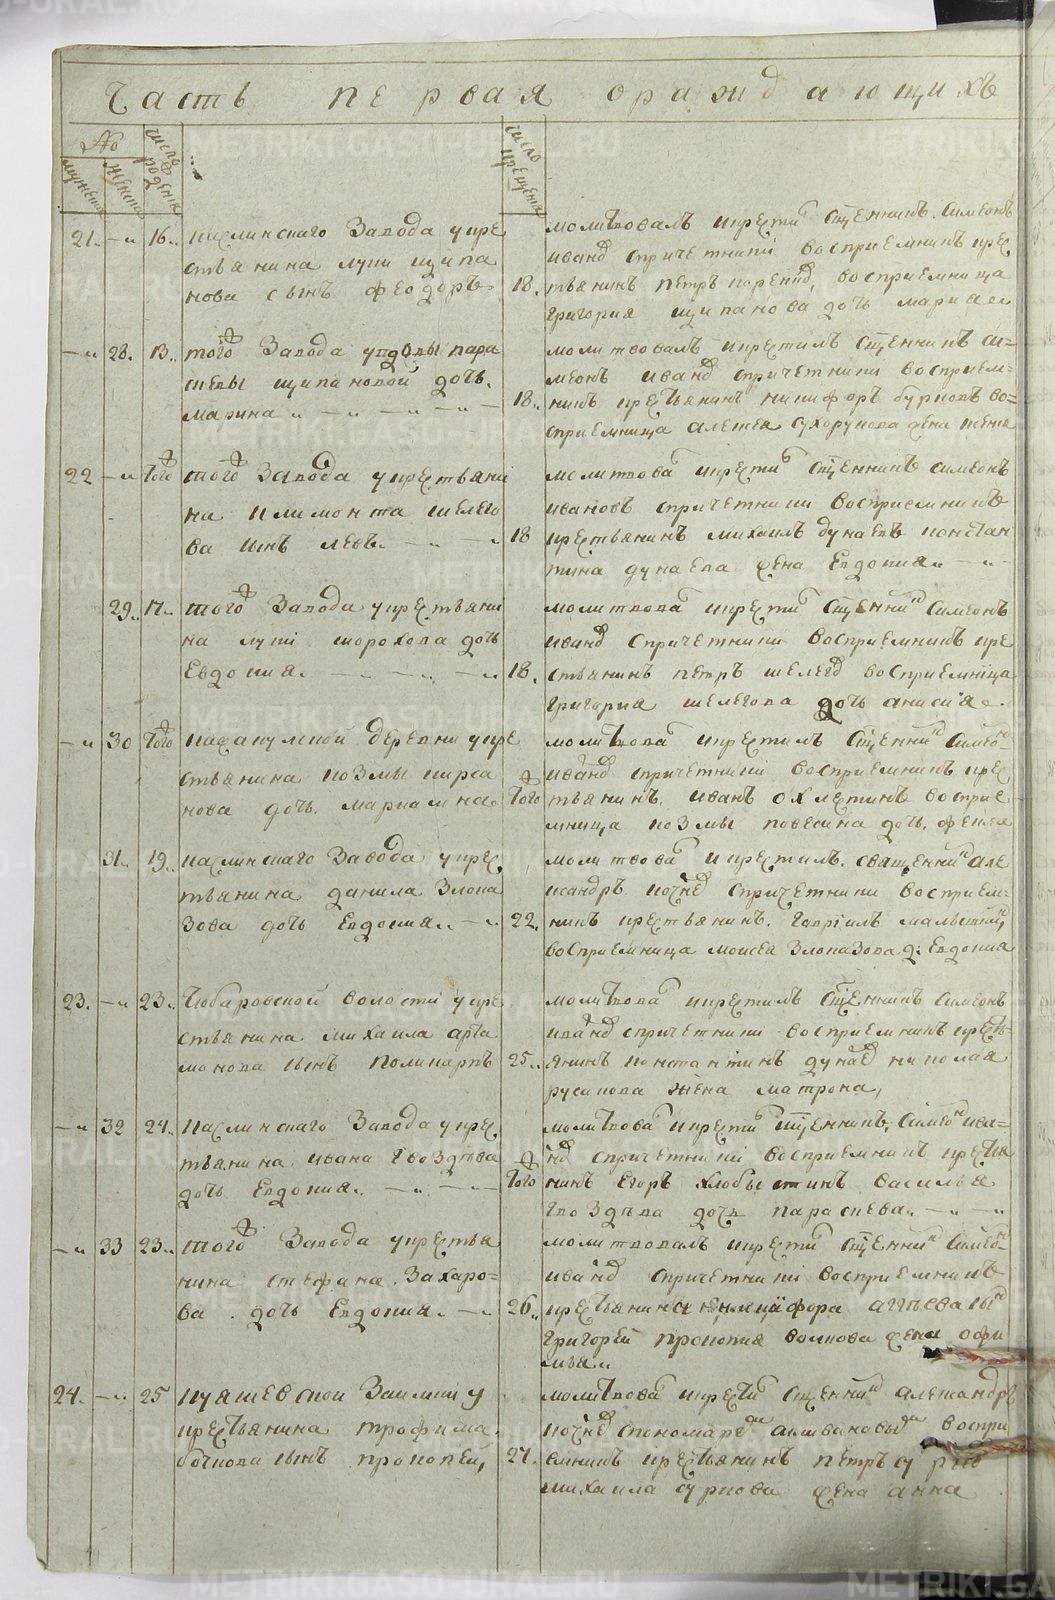 Часть первая ораждающихъ
No
мужеска
женска
число рожденiя
число крещенiя
21. — „ 16. каслинскаго завода укре
стьянина луки щипа
нова сынъ феодоръ
18.
молитвовалъ икрестил Сщенникъ Симеонъ
Иванов спричетники восприемникъ крес
тьянинъ петръ восприемница
григорiя щипанова дочь марiя
— „ 28. 13. того Завода увдовы пара
скевы щипановой дочь.
марина
18.
молитвовалъ икрестилъ Сщенникъ си=
меонъ Иванов спричетники восприем=
никъ крестьянинъ никифоръ бурковъ во=
сприемница алексея сухорукова жена
22 — „ того
того Завода укрестьяни
на Филимонта шелего
ва сынъ левъ
18
молитвова икрести Сщенникъ симеонъ
Ивановъ спричетники восприемникъ
крестьянинъ михаилъ дунаевъ констан
тина дунаева жена Евдокия
29. 17. того Завода укрестьяни
на луки шорохова дочь
Евдокия
18.
молитвова икрести Сщенник Симеонъ
Иванов спричетники восприемникъ кре
стьянинъ петръ шелегов восприемница
григория шелегова дочь анисия
— „ 30 того
деревни укре
стьянина козмы кирса
нова дочь. мариамна
того
молитвова икрестилъ Сщенник Симеон
Иванов спричетники восприемникъ крес
тьянинъ. иванъ охлестинъ воспрiе
мница козмы дочь. фекла
31. 19. каслинскаго завода укрес
тьянина данила Злока
зова дочь Евдокия
22.
молитвова икрестилъ. священник але
ксандръ спричетники восприем=
никъ крестьянинъ. гаврiилъ
восприемница моисея Злоказова д: Евдокия
23. — „ 23. Тюбаровской волости укре
стьянина михаила арта
монова сынъ поликарпъ
25.
молитвова икрестилъ Сщенникъ Симеонъ
Иванов спричетники восприемникъ кресть
янинъ константинъ дунаев николая
русинова жена матрона,
— „ 32 24. каслинскаго завода укрес
тьянина ивана Гвоздева
дочь Евдокия
того
молитвова икрести сщенникъ, Симеон ива=
нов спричетники восприемникъ крестья
нинъ Егоръ хлобыстинъ василья
Гвоздева дочь параскева
— „ 33 23. того Завода укрестья
нина стефана. Захаро=
ва дочь Евдокия
26.
молитвовалъ икрести Сщенник Симеон
Иванов спричетники восприемникъ
крестьянина агѣева сын
григорей прокопия волкова жена офи
мья
24. — „ 25 куяшевской Заимки у
крестьянина трофима
бочкова сынъ прокопей,
27.
молитвова икрести Сщенник александръ
спономаремъ воспри
емникъ крестьянинъ петръ
михаила суркова жена анна